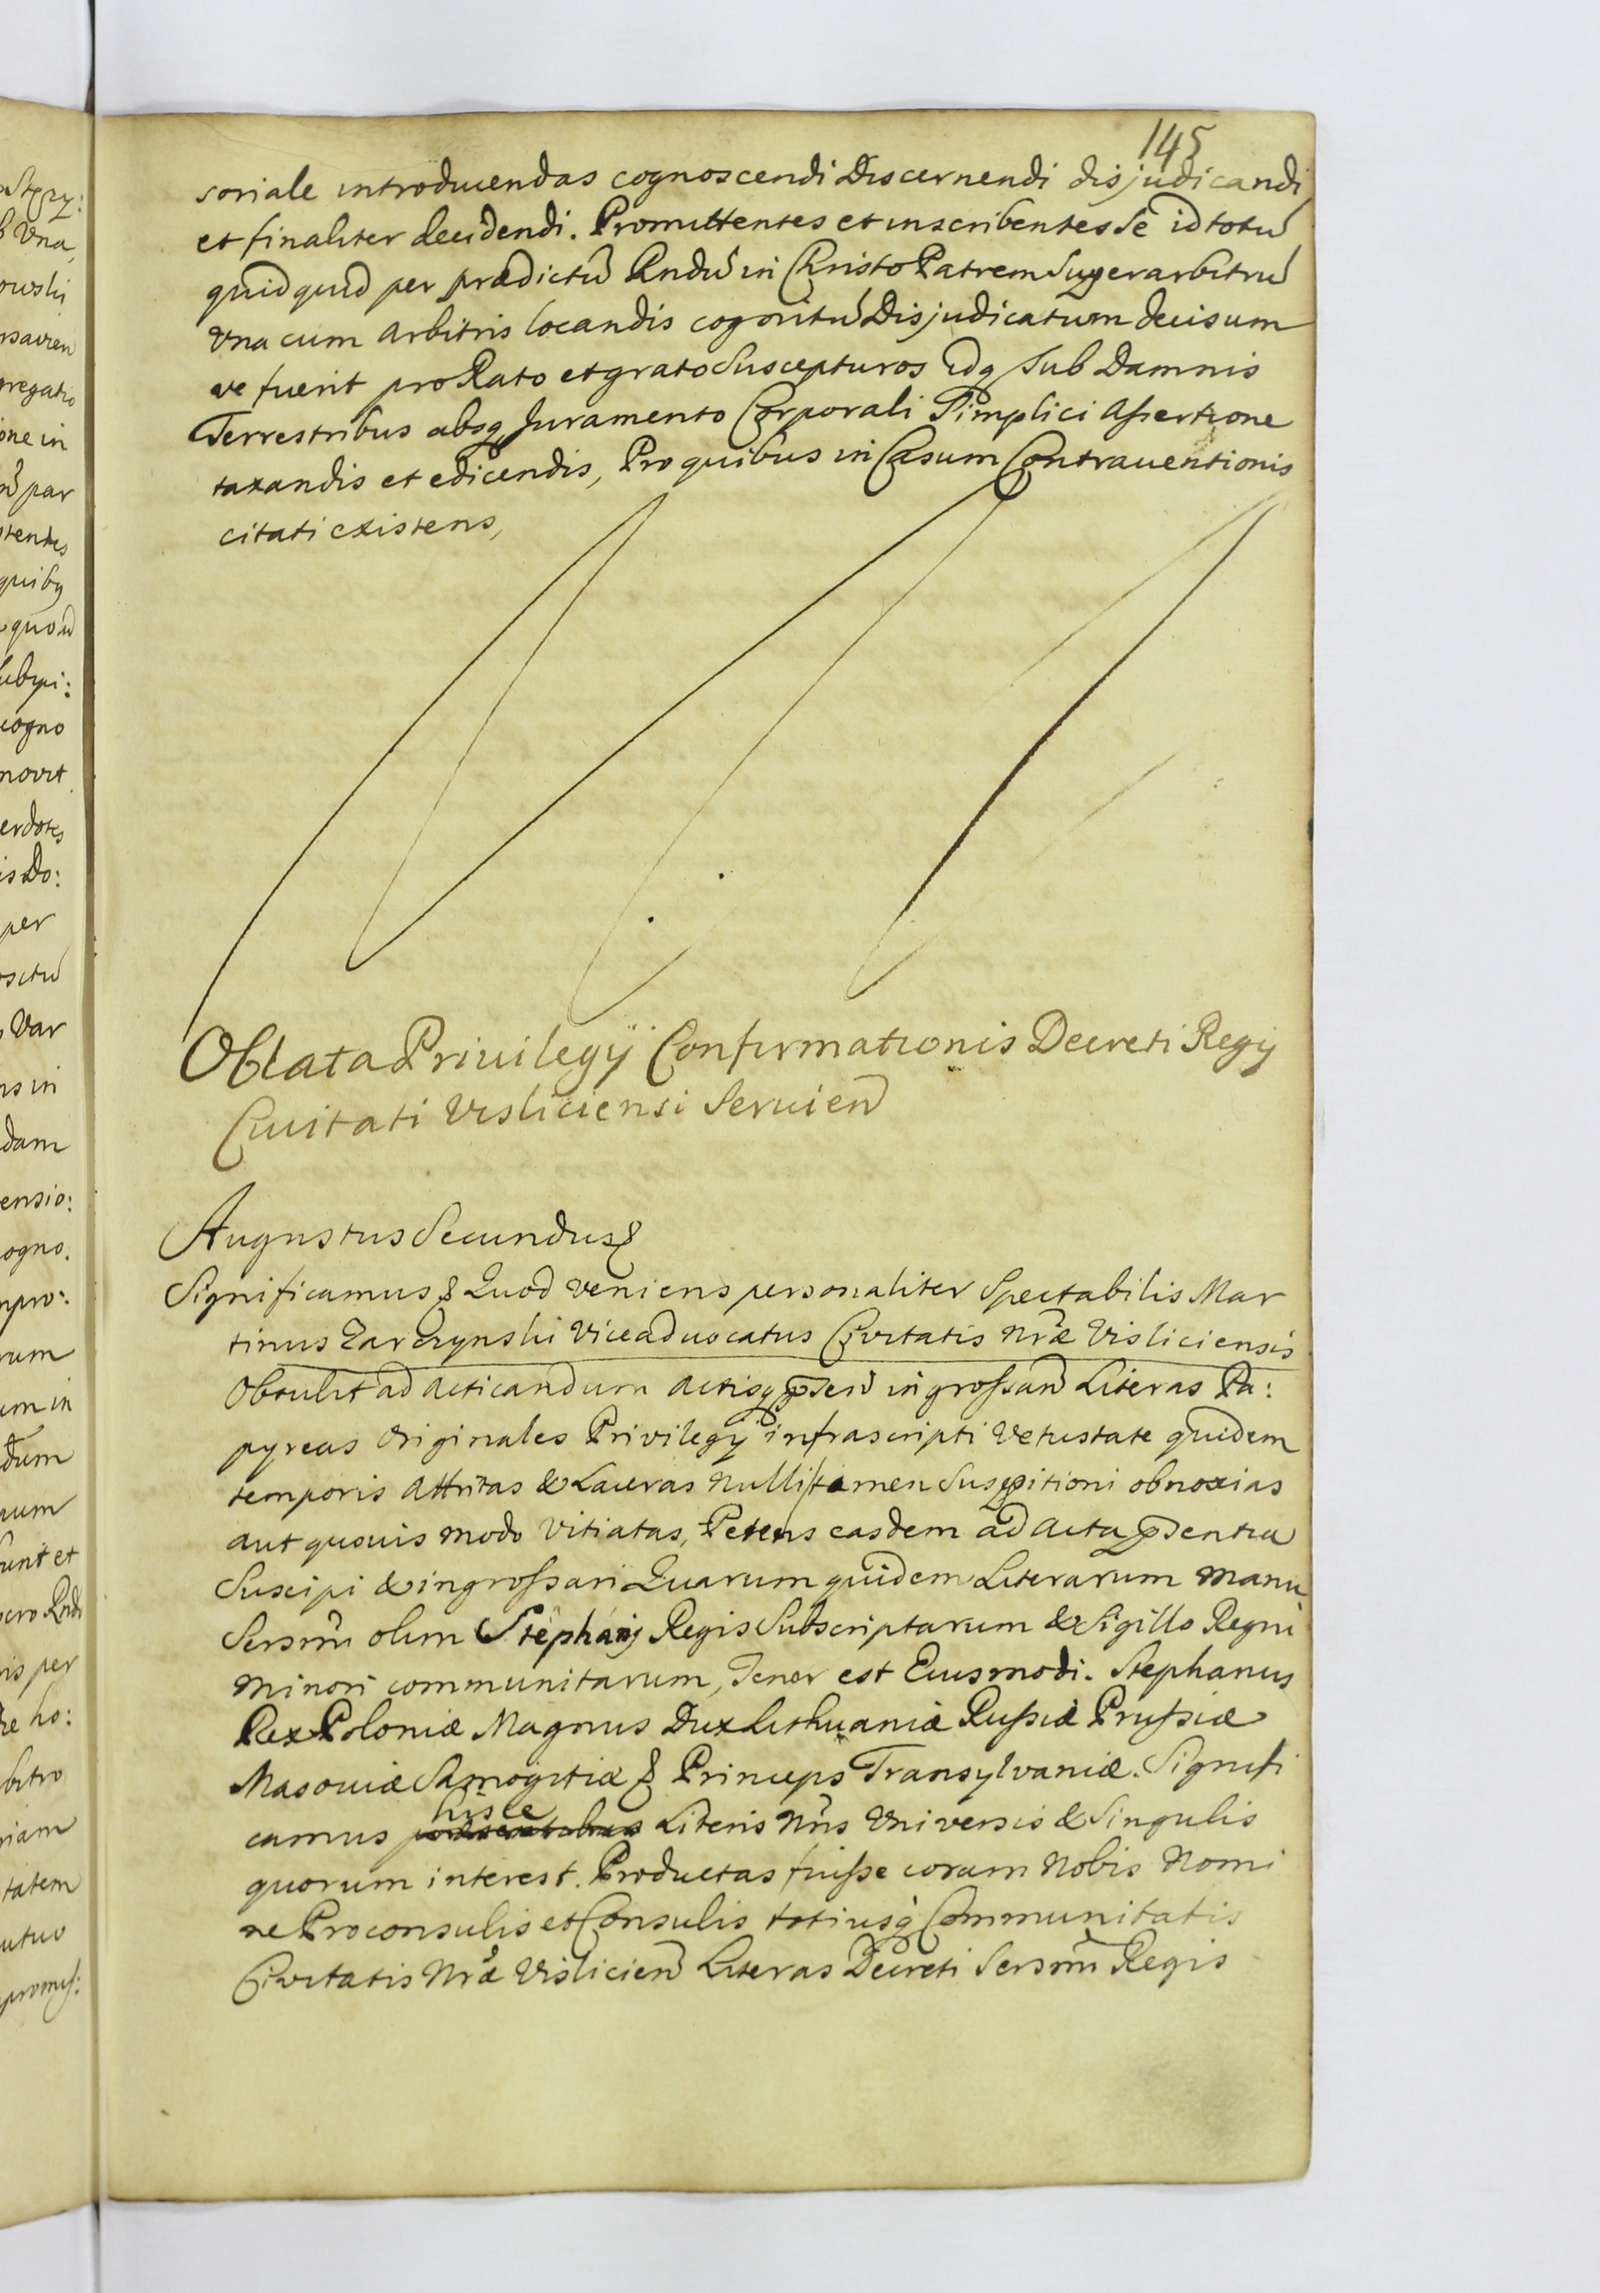 145
soriale introducendas cognoscendi Discernendi disjudicandi
et finaliter decidendi. Promittentes et inscribentes Se id totu
quidquid per prædictu Rndu in Christo Patrem Superarbitru
Una cum Arbitris locandis cognitu Disjudicatum decisum
ve fuerit pro Rato et grato Suscepturos idq Sub Damnis
Terrestribus absq Juramento Corporali Simplici Assertione
taxandis et edicendis, Pro quibus in Casum Contrauentionis
citati existens,
Oblata Priuilegÿ Confirmationis Decreti Regÿ
Ciuitati Visliciensi Seruien
Augustus Secundus &
Significamus & Quod veniens personaliter Spectabilis Mar
tinus Zarczynski Viceaduocatus Civitatis Nræ Visliciensis
Obtulit ad acticandum Actisq pnsen ingrossand Literas Pa:
pyreas Originales Privilegÿ infrascripti Vetustate quidem
temporis Attritas & Laceras Nulli tamen Suspitioni obnoxias
aut quouis modo Vitiatas, Petens easdem ad Acta pnsentia
Suscipi & ingrossari Quarum quidem Literarum Manu
Sersmi olim Stephanj Regis Subscriptarum & Sigillo Regni
Minori communitarum, Tenor est Eiusmodi. Stephanus
Rex Poloniæ Magnus Dux Lithuaniæ Russiæ Prussiæ
Masouiæ Samogitiæ & Princeps Transylvaniæ. Signifi
camus hisce Literis Nris Universis & Singulis
quorum interest. Productas fuisse coram Nobis Nomi
ne Proconsulis et Consulis totiusq Communitatis
Civitatis Nræ Vislicien Literas Decreti Sersmi Regis